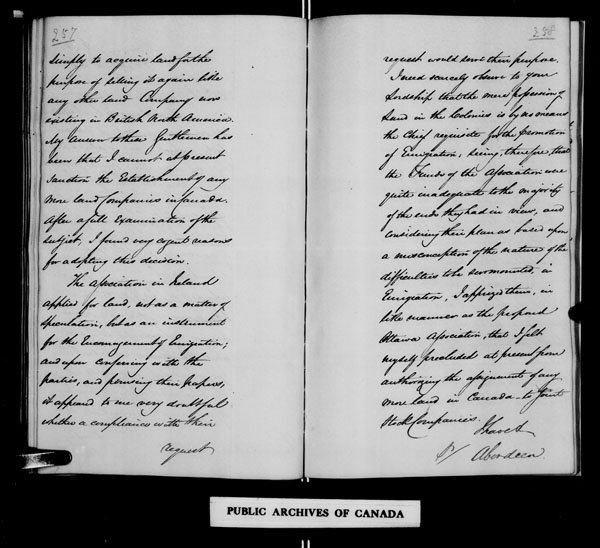 257
simply to acquire land for the
purpose of selling it again like
any other land Company now
existing in British North America.
My answer to these Gentlemen has
been that I cannot at present
sanction the Establishment of any
more land Companies in Canada.
After a full Examination of the
subject, I found very cogent reasons
for adopting this decision.
The Association in Ireland
applied for land, not as a matter of
speculation, but as an instrument
for the Encouragement of Emigration;
and upon conferring with the
parties, and perusing their papers,
it appeared to me very doubtful
whether a compliance with their
request
258
request would serve their purpose.
I need scarcely observe to your
Lordship that the mere possession of
Land in the Colonies is by no means
the Chief requisite for the promotion
of Emigration; seeing, therefore, that
the Funds of the Association were
quite inadequate to the majority
of the ends they had in view, and
considering their plan as based upon
a misconception of the nature of the
difficulties to be surmounted in
Emigration, I apprized them, in
like manner as the proposed
Ottawa Association, that I felt
myself precluded at present from
authorizing the assignment of any
more land in Canada to Joint
Stock Companies.
I have &
Aberdeen.
PUBLIC ARCHIVES OF CANADA